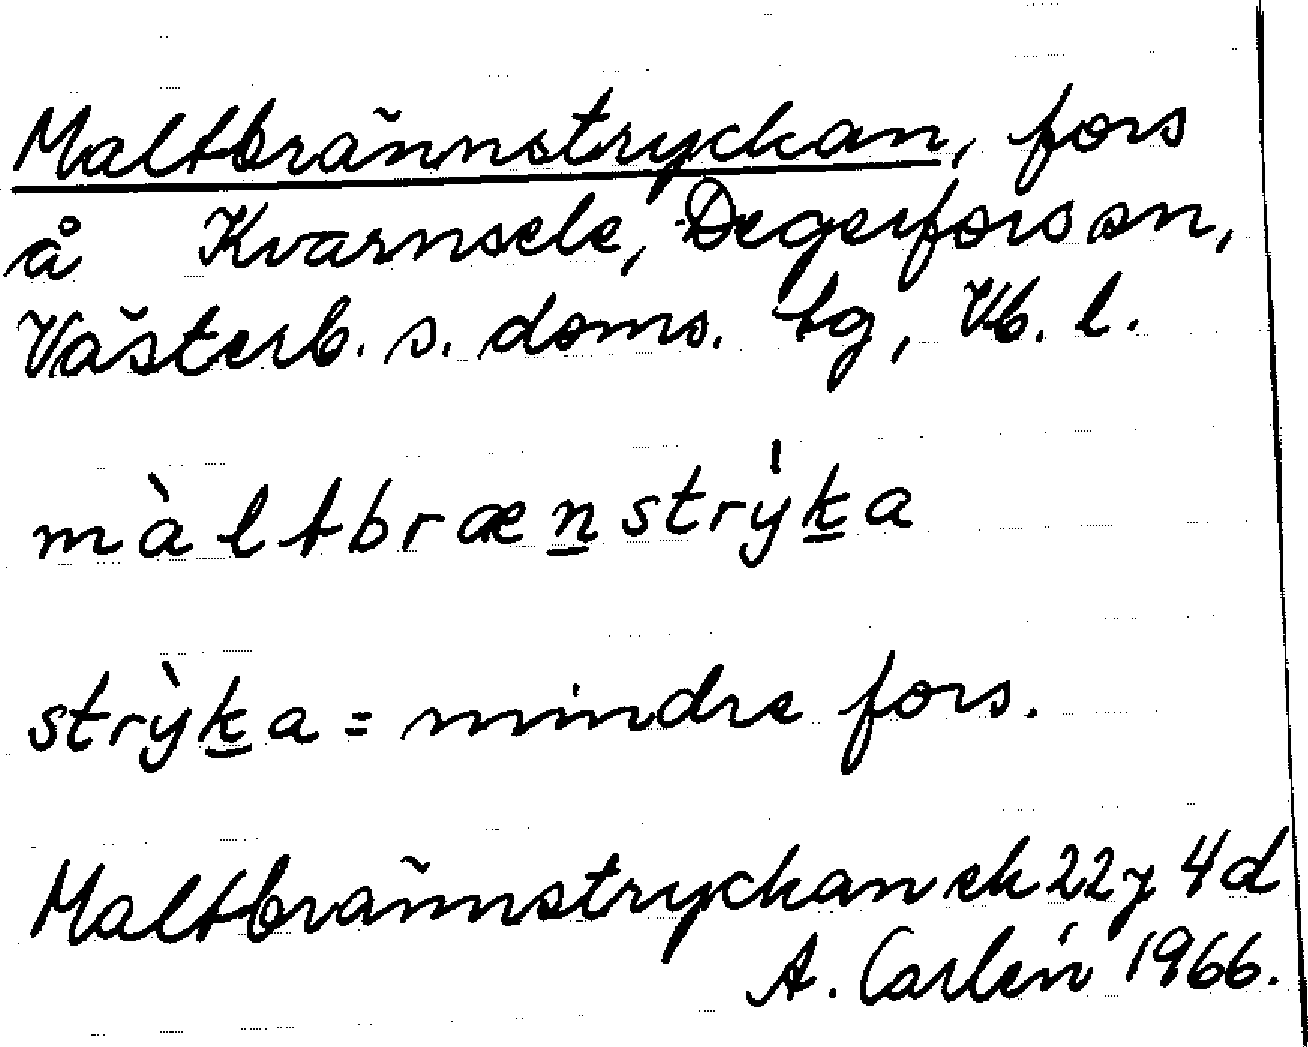 Maltbrännstryckan, fors
å Kvarnsele, Degerfors sn,
Västerb. s. doms. tg, Vb. l.
màltbrænstrýka
strỳka = mindre fors.
Maltbrännstryckan ek 22 y 4 d
A. Carlén 1966.